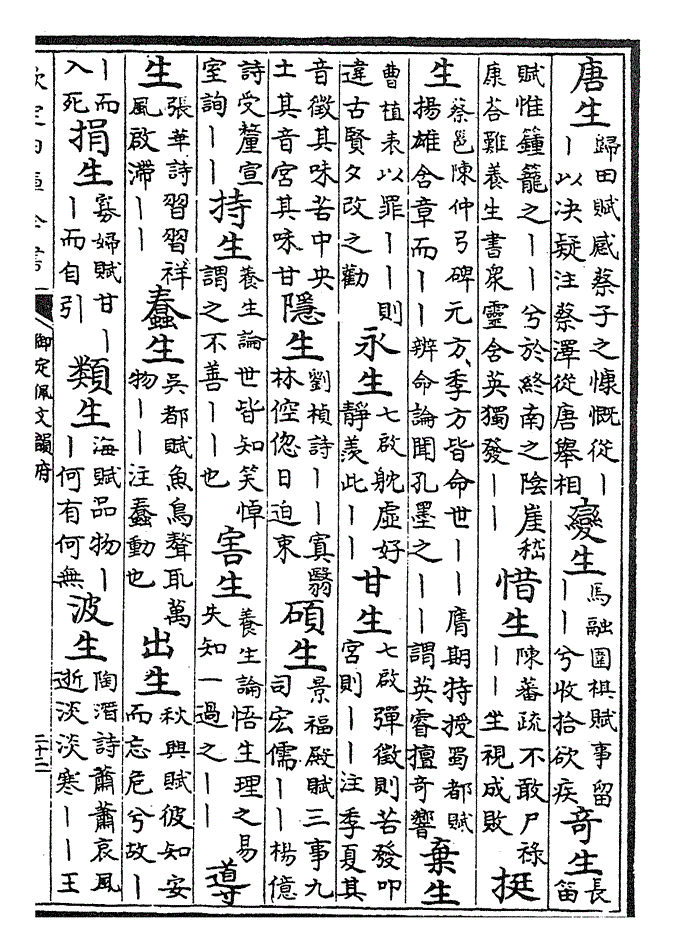 唐生歸田賦感蔡子之慷慨從丨丨以决疑注蔡澤從唐舉相變生馬融圍棋賦事留丨丨兮收拾欲疾奇生長笛
賦惟籦籠之丨丨兮於終南之陰崖嵇康荅難養生書衆靈含英獨發丨丨惜生陳蕃疏不敢尸祿丨丨坐視成敗挺
生蔡邕陳仲弓碑元方、季方皆命世丨丨膺期特授蜀都賦揚雄含章而丨丨辨命論聞孔墨之丨丨謂英睿擅奇響棄生
曹植表以罪丨丨則違古賢夕改之勸永生七啟躭虛好靜羡此丨丨甘生七啟彈徵則苦發叩宮則丨丨注季夏其
音徵其味苦中央土其音宮其味甘隱生劉楨詩丨丨寘翳林倥偬日迫束碩生景福殿賦三事九司宏儒丨丨楊億
詩受釐宣室詢丨丨持生養生論世皆知笑悼謂之不善丨丨也害生養生論悟生理之易失知一過之丨丨導
生張華詩習習祥風啟滯丨丨蠢生吳都賦魚鳥聲耴萬物丨丨注蠢動也出生秋興賦彼知安而忘危兮故丨
丨而入死捐生寡婦賦甘丨丨而自引類生海賦品物丨丨何有何無波生陶潛詩蕭蕭哀風逝淡淡寒丨丨王
欽定四庫全書
御定佩文韻府
二十二